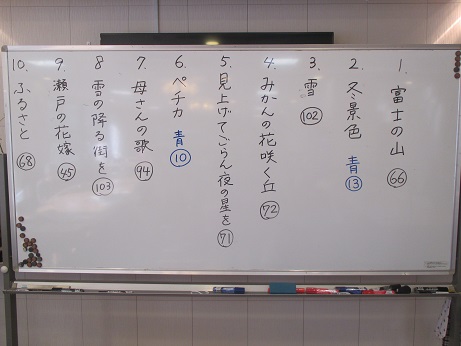 1. 富士の山 66
2. 冬景色 青 13
3. 雪 102
4. みかんの花咲く丘 72
5. 見上げてごらん夜の星を 71
6. ペチカ 青 10
7. 母さんの歌 94
8 雪の降る街を 103
9. 瀬戸の花嫁 45
10. ふるさと 68